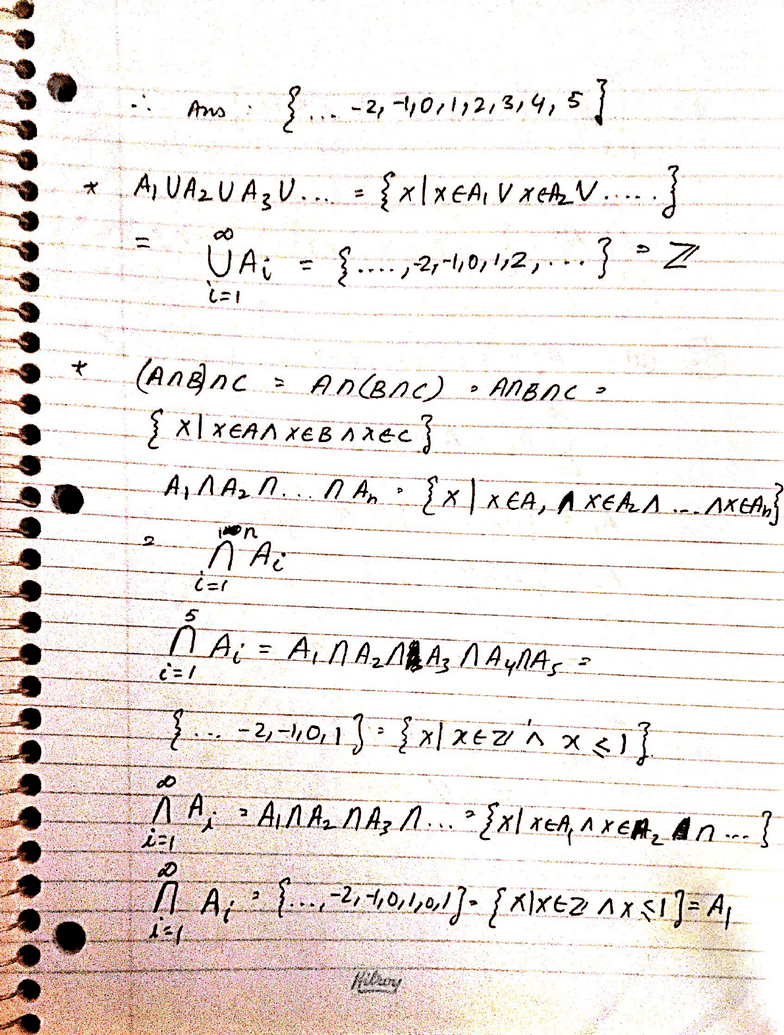 ∴ Ans : {... -2, -1, 0, 1, 2, 3, 4, 5}
* A₁ ∪ A₂ ∪ A₃ ∪ ... = {x | x ∈ A₁ ∨ x ∈ A₂ ∨ .....}
= ∞ ∪ i=1 Aᵢ = {....., -2, -1, 0, 1, 2, ...} = ℤ
* (A∩B)∩C = A∩(B∩C) = A∩B∩C =
{x | x∈A ∧ x∈B ∧ x∈C}
A₁ ∩ A₂ ∩ ... ∩ Aₙ = {x | x∈A₁ ∧ x∈A₂ ∧ ... ∧ x∈Aₙ}
= n ∩ i=1 Aᵢ
5 ∩ i=1 Aᵢ = A₁ ∩ A₂ ∩ A₃ ∩ A₄ ∩ A₅ =
{... -2, -1, 0, 1} = {x | x∈ℤ ∧ x ≤ 1}
∞ ∩ i=1 Aᵢ = A₁ ∩ A₂ ∩ A₃ ∩ ... = {x | x∈A₁ ∧ x∈A₂ ∩ ...}
∞ ∩ i=1 Aᵢ = {..., -2, -1, 0, 1, 0, 1} = {x | x∈ℤ ∧ x ≤ 1} = A₁
Hilroy